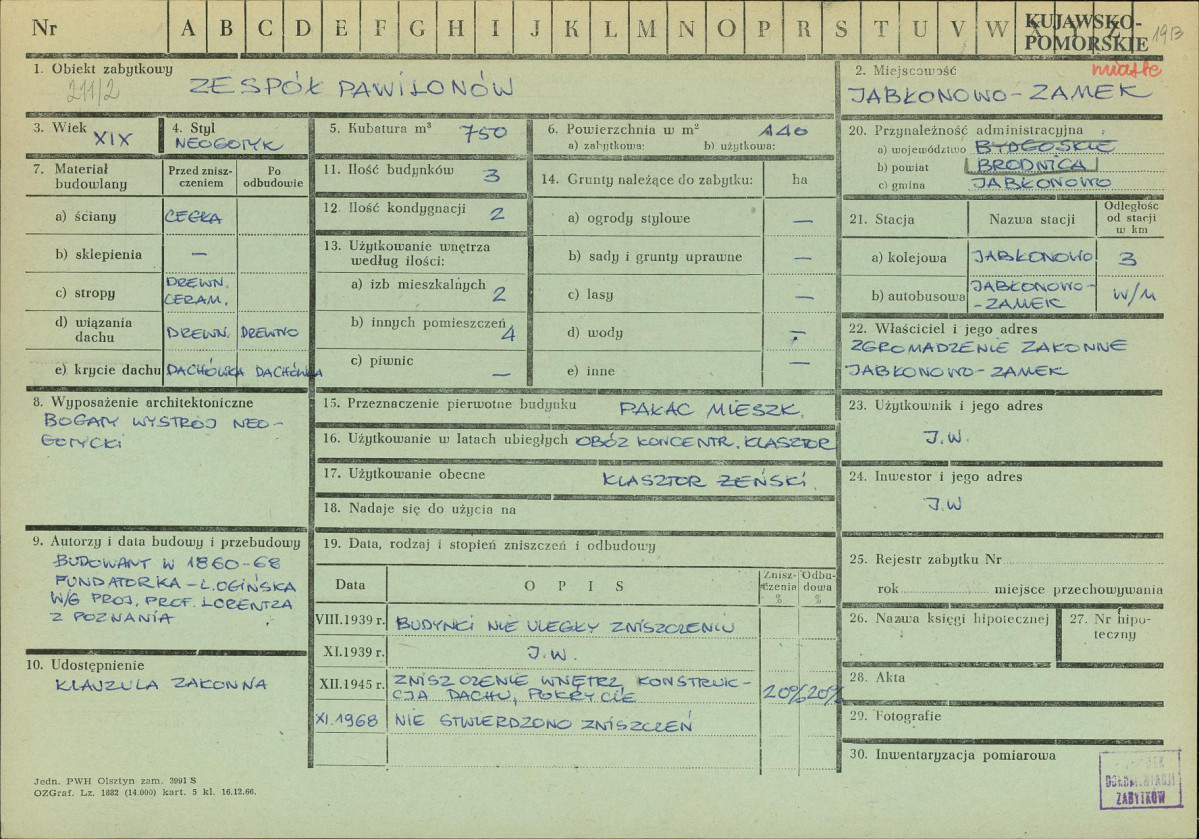 Nr A B C D E F G H I J K L M N O P R S T U V W X Y Z
KUJAWSKO-
POMORSKIE 193
1. Obiekt zabytkowy
211/2 ZESPÓŁ PAWILONÓW
2. Miejscowość miasto
JABŁONOWO-ZAMEK
3. Wiek XIX
4. Styl
NEOGOTYK
5. Kubatura m³ 750
6. Powierzchnia w m² 140
a) zabytkowa: b) użytkowa:
7. Materiał
budowlany
Przed znisz-
czeniem
Po
odbudowie
a) ściany CEGŁA
b) sklepienia —
c) stropy DREWN.
CERAM.
d) wiązania
dachu DREWN. DREWNO
e) krycie dachu DACHÓWKA DACHÓWKA
8. Wyposażenie architektoniczne
BOGATY WYSTRÓJ NEO-
GOTYCKI
9. Autorzy i data budowy i przebudowy
BUDOWANY W 1860-68
FUNDATORKA - L. OGIŃSKA
W/G PROJ. PROF. LORENTZA
Z POZNANIA
10. Udostępnienie
KLAUZULA ZAKONNA
11. Ilość budynków 3
12. Ilość kondygnacji 2
13. Użytkowanie wnętrza
według ilości:
a) izb mieszkalnych 2
b) innych pomieszczeń 4
c) piwnic —
14. Grunty należące do zabytku: ha
a) ogrody stylowe —
b) sady i grunty uprawne —
c) lasy —
d) wody —
e) inne —
15. Przeznaczenie pierwotne budynku PAŁAC MIESZK.
16. Użytkowanie w latach ubiegłych OBÓZ KONCENTR. KLASZTOR
17. Użytkowanie obecne KLASZTOR ŻEŃSKI.
18. Nadaje się do użycia na
19. Data, rodzaj i stopień zniszczeń i odbudowy
Data O P I S Znisz-
czenia
% Odbu-
dowa
%
VIII.1939 r. BUDYNKI NIE ULEGŁY ZNISZCZENIU
XI.1939 r. J.W.
XII.1945 r. ZNISZCZENIE WNĘTRZ KONSTRUK-
CJA DACHU, POKRYCIE 20% 20%
XI.1968 NIE STWIERDZONO ZNISZCZEŃ
20. Przynależność administracyjna
a) województwo BYDGOSKIE
b) powiat BRODNICA
c) gmina JABŁONOWO
21. Stacja Nazwa stacji Odległość
od stacji
w km
a) kolejowa JABŁONOWO 3
b) autobusowa JABŁONOWO-
-ZAMEK W/M
22. Właściciel i jego adres
ZGROMADZENIE ZAKONNE
JABŁONOWO-ZAMEK
23. Użytkownik i jego adres
J.W.
24. Inwestor i jego adres
J.W
25. Rejestr zabytku Nr
rok miejsce przechowywania
26. Nazwa księgi hipotecznej
27. Nr hipo-
teczny
28. Akta
29. Fotografie
30. Inwentaryzacja pomiarowa
DOKUMENTACJI
ZABYTKÓW
Jedn. PWH Olsztyn zam. 3991 S
OZGraf. Lz. 1882 (14.000) kart. 5 kl. 16.12.66.